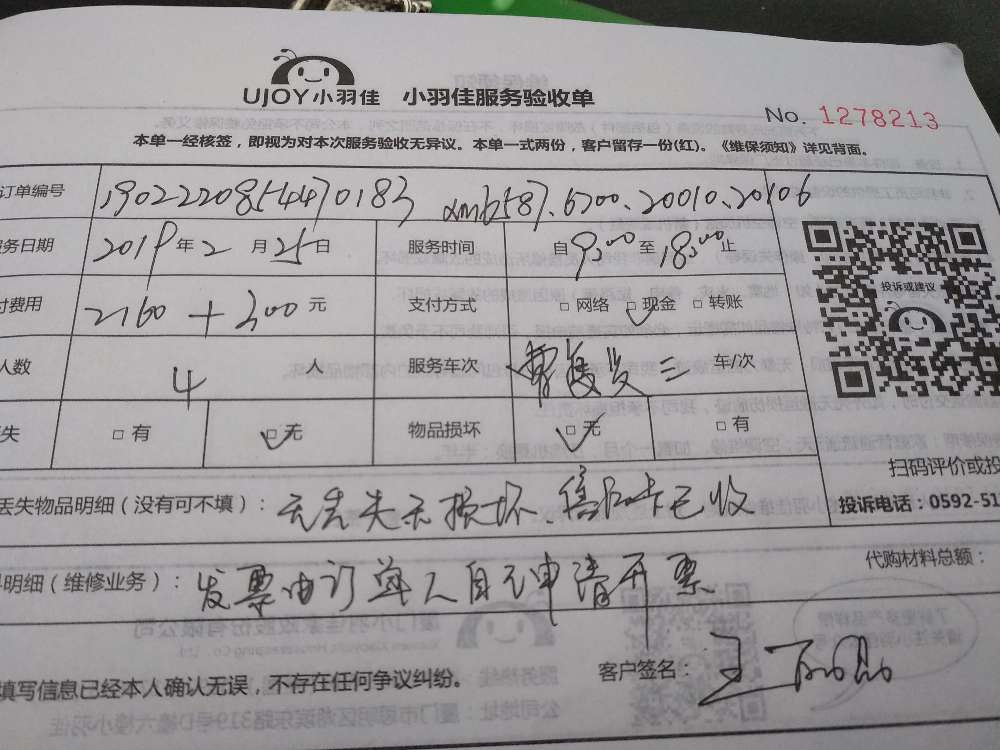 UJOY小羽佳 小羽佳服务验收单
No. 1278213
本单一经核签，即视为对本次服务验收无异议。本单一式两份，客户留存一份(红)。《维保须知》详见背面。
订单编号 190222085470183 xmb587.6700.20010.20106
务日期 2019 年 2 月 25 日 服务时间 自 9:00 至 18:00 止
付费用 2160 + 300 元 支付方式 □ 网络 □ 现金 □ 转账
投诉或建议
人数 4 人 服务车次 三 车/次
失 □ 有 □ 无 物品损坏 □ 无 □ 有
扫码评价或投
丢失物品明细（没有可不填）：无丢失无损坏、售后卡已收
投诉电话：0592-51
明细（维修业务）：发票由订单人自元申请开票
代购材料总额：
填写信息已经本人确认无误，不存在任何争议纠纷。
客户签名：王